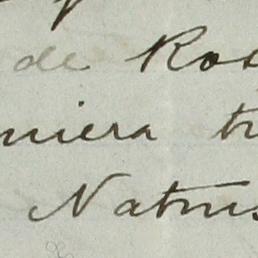 de Ros
niera tr
Natur